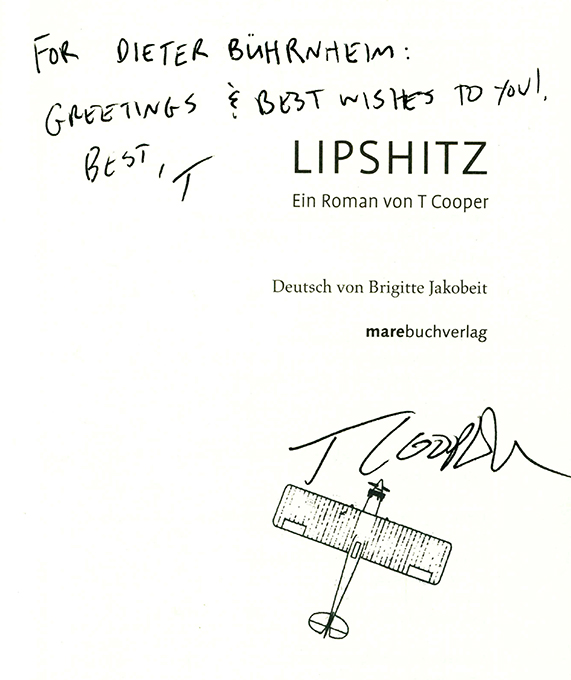 FOR DIETER BÜHRNHEIM:
GREETINGS & BEST WISHES TO YOU!
BEST, T
LIPSHITZ
Ein Roman von T Cooper
Deutsch von Brigitte Jakobeit
marebuchverlag
T Cooper